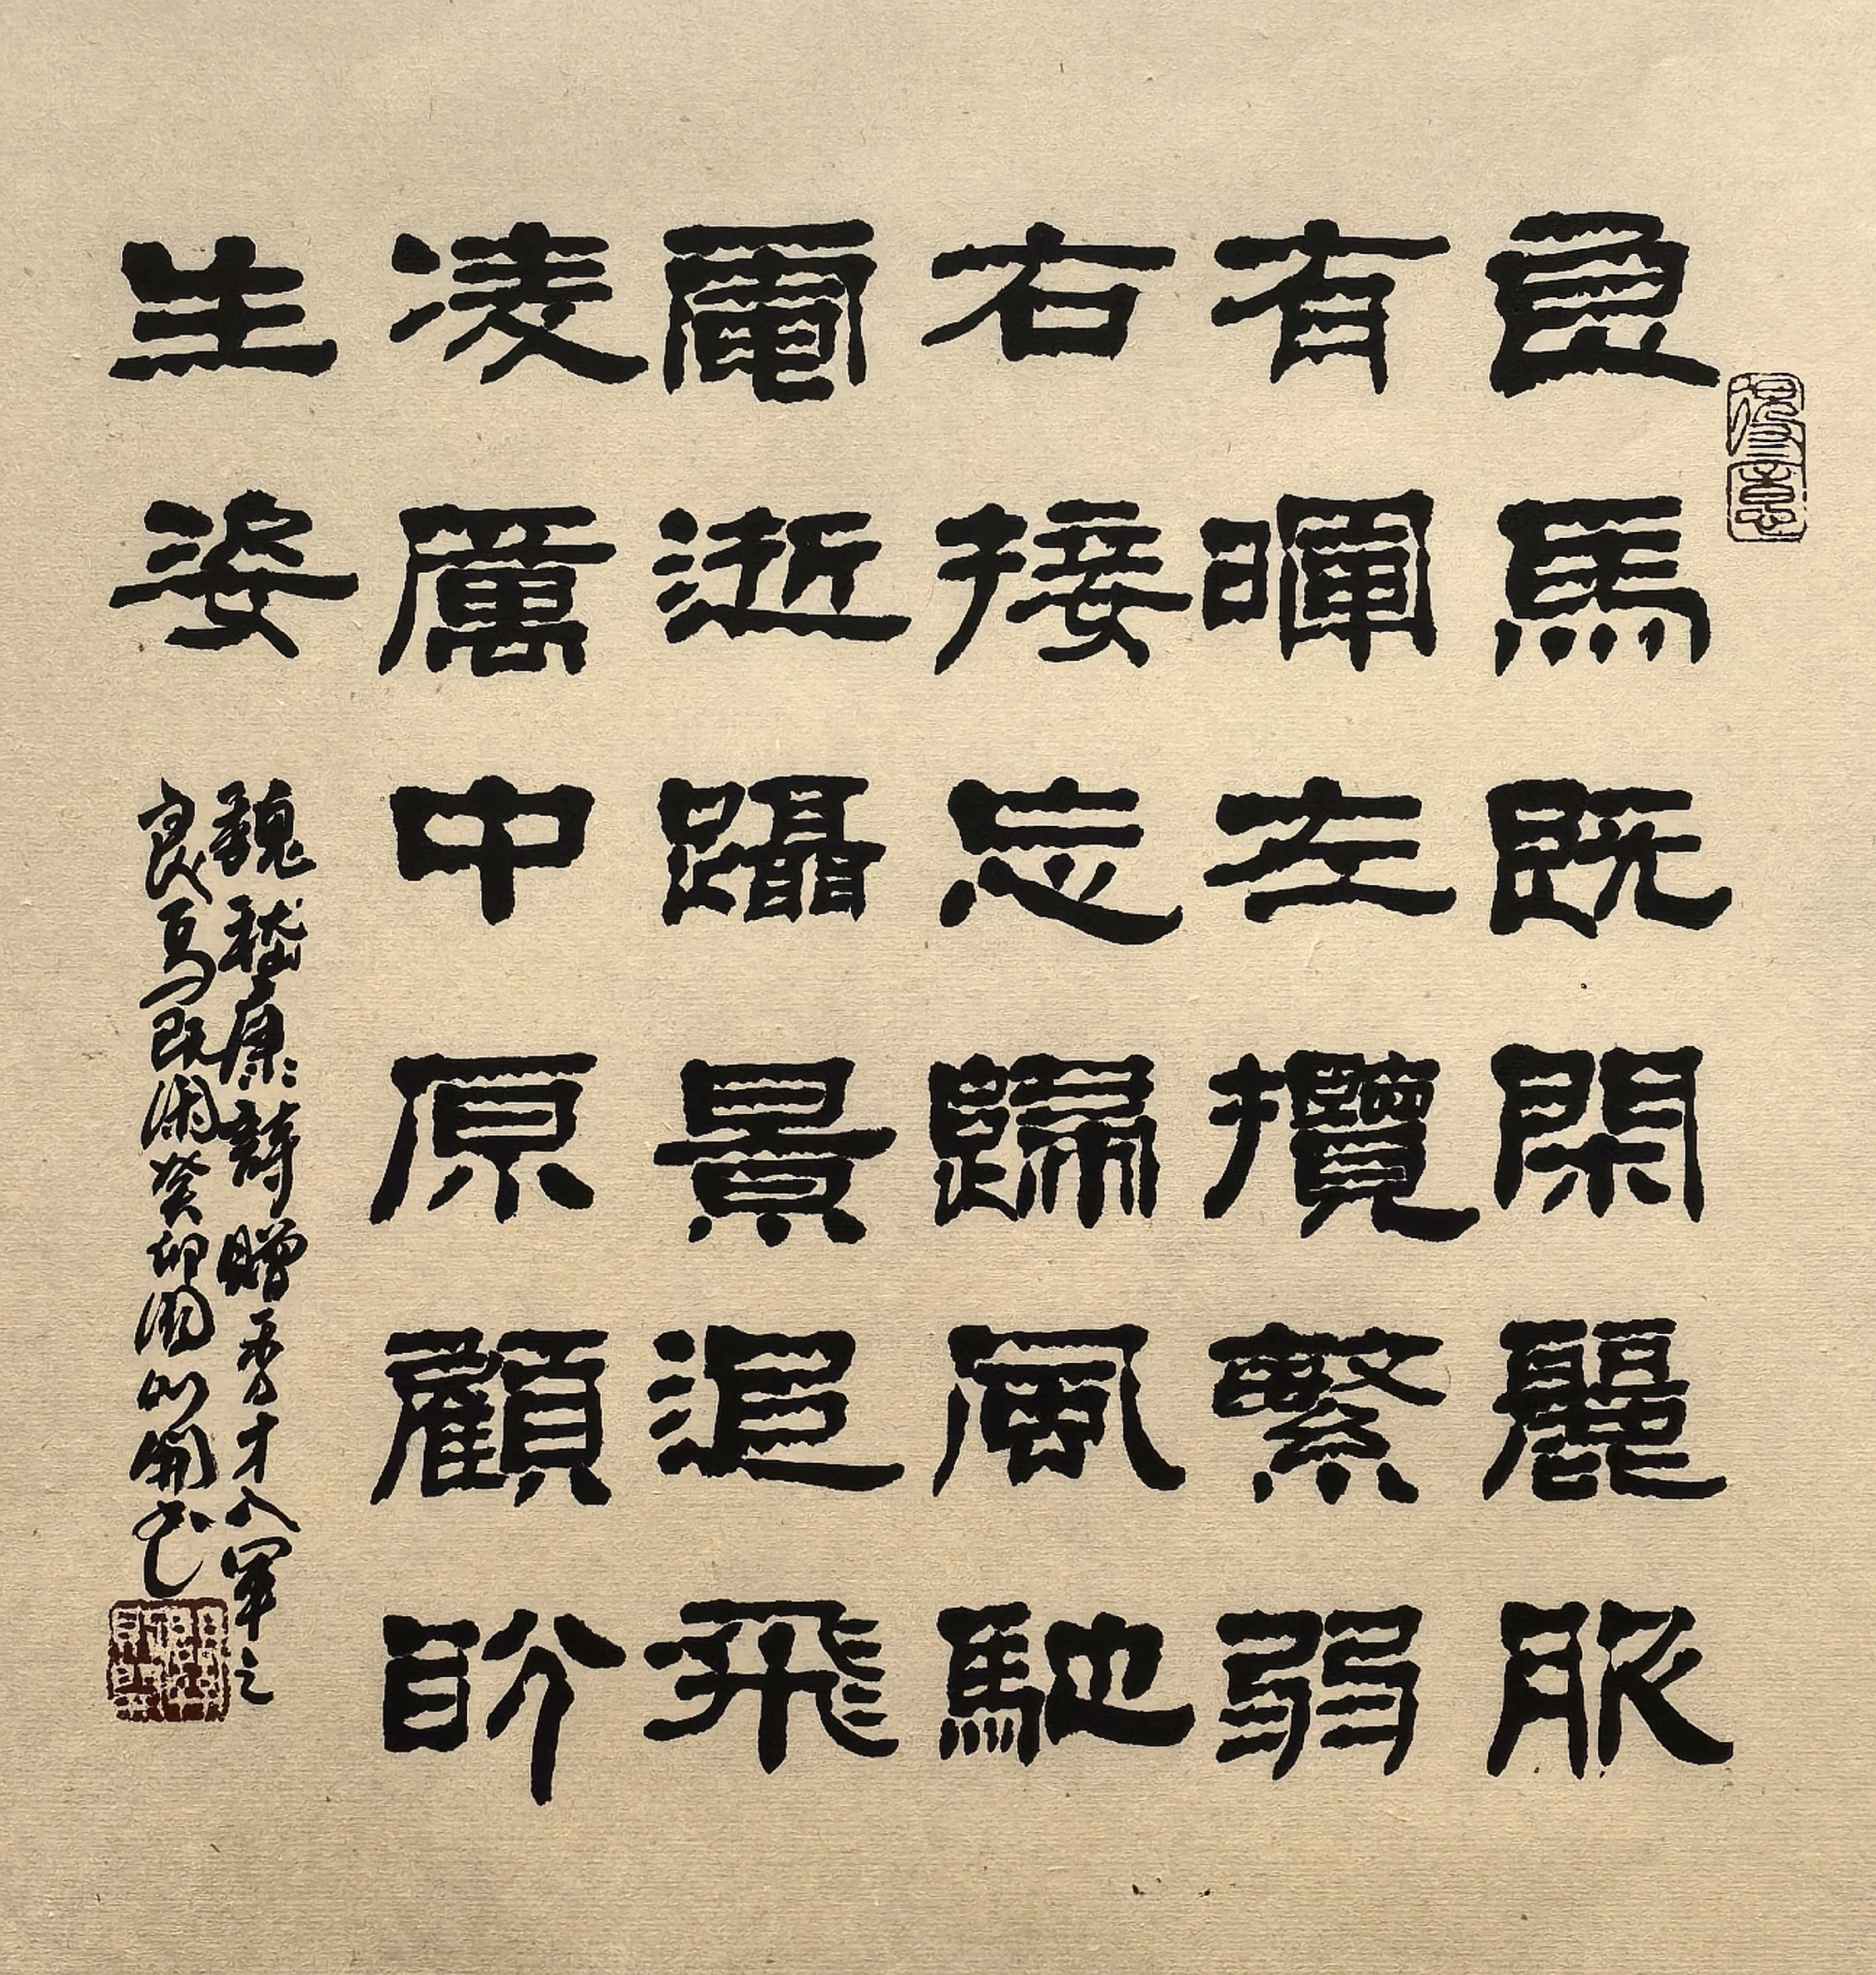 良馬既閑麗服
有暉左攬繁弱
右接忘歸風馳
電逝躡景追飛
凌厲中原顧盼
生姿
魏嵇康詩贈秀才入軍之
良馬既閑癸卯
得意